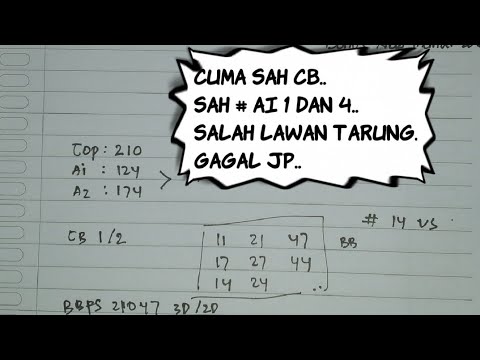 CUMA SAH CB..
SAH # AI 1 DAN 4..
SALAH LAWAN TARUNG.
GAGAL JP..
TOP : 210
Ai : 124
A2 : 174 >
# 14 VS .
CB 1/2
11 21 47 BB
17 27 44
14 24 ...
BBPS 21047 3D/2D